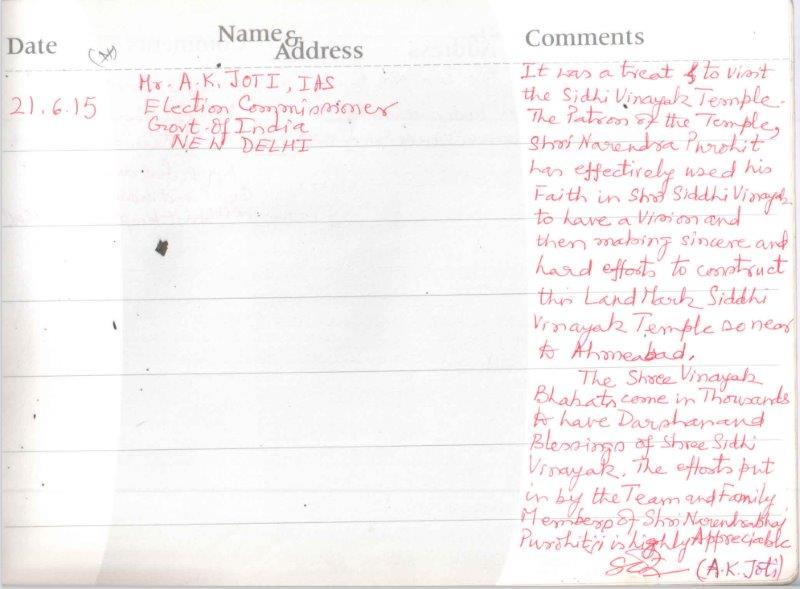 Date
Name & Address
Comments
21.6.15
Mr. A.K. JOTI, IAS
Election Commissioner
Govt. of India
NEW DELHI
It was a treat to visit
the Sidhi Vinayak Temple.
The Patron of the Temple,
Shri Narendra Purohit
has effectively used his
Faith in Shri Siddhi Vinayak
to have a Vision and
then making sincere and
hard efforts to construct
this Land Mark Siddhi
Vinayak Temple so near
to Ahmeabad.
The Shree Vinayak
Bhakats come in Thousands
to have Darshan and
Blessings of Shree Sidhi
Vinayak. The efforts put
in by the Team and Family
Members of Shri Narendrabhai
Purohitji is highly Appreciable
(A.K. Joti)